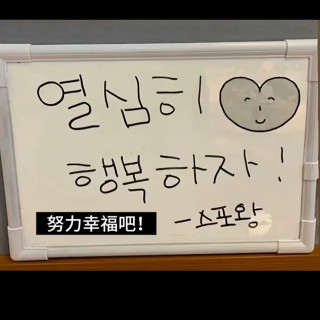 열심히
행복하자!
努力幸福吧!
-스포왕